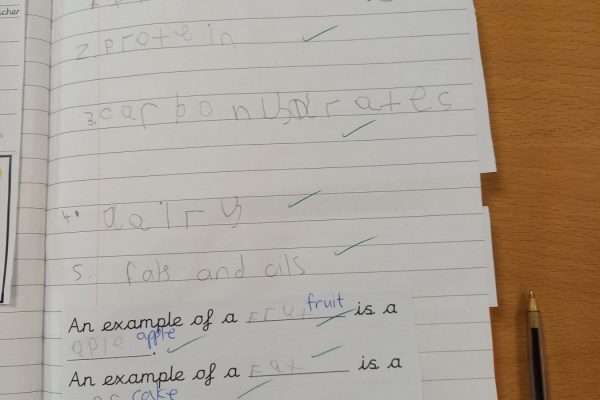 cher
2. protein
3. carbonhydrates
4. dairy
5. fats and oils
An example of a fruit fruit is a
aple apple.
An example of a Fat is a
cake